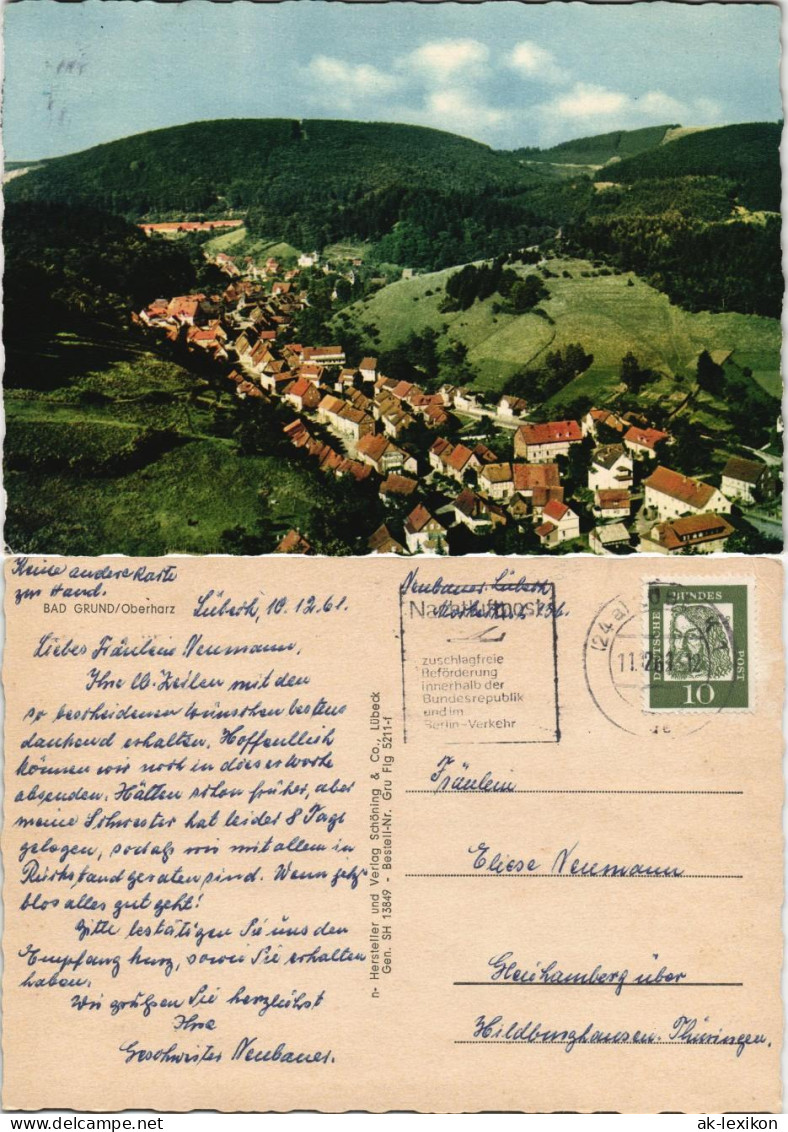 Keine andere Karte
zur Hand.
BAD GRUND/Oberharz
Lübeck, 10.12.61.
Liebes Fräulein Neumann,
Ihre lb. Zeilen mit den
so bescheidenen Wünschen bestens
dankend erhalten. Hoffentlich
können wir noch in dieser Woche
absenden. Hätten schon früher, aber
meine Schwester hat leider 8 Tage
gelegen, sodaß wir mit allem in
Rückstand geraten sind. Wenn jetzt
blos alles gut geht!
Bitte bestätigen Sie uns den
Empfang kurz, sowie Sie erhalten
haben.
Wir grüßen Sie herzlichst
Ihre
Geschwister Neubauer.
n- Hersteller und Verlag Schöning & Co., Lübeck
Gen. SH 13849 - Bestell-Nr. Gru Flg 5211-f
Neubauer Lübeck
Nachtluftpost
zuschlagfreie
Beförderung
innerhalb der
Bundesrepublik
und im
Berlin-Verkehr
(24a)
11.12.61.-12
DEUTSCHE BUNDESPOST
10
Fräulein
Eliese Neumann
Gleichamberg über
Hildburghausen. Thüringen.
ak-lexikon